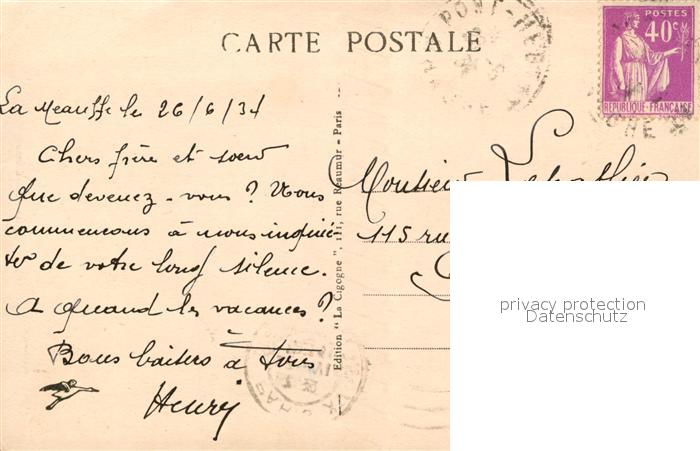 CARTE POSTALE
POSTES
40c
REPUBLIQUE FRANÇAISE
PONT-HEB
MANCHE
La Meauffe le 26/6/34
Chers frère et soeur
Que devenez-vous ? Nous
commencons à nous inquié
ter de votre long silence.
A quand les vacances ?
Bons baisers à tous
Henri
Edition "La Cigogne", 111, rue Réaumur - Paris
Monsieur
115 ru
privacy protection
Datenschutz